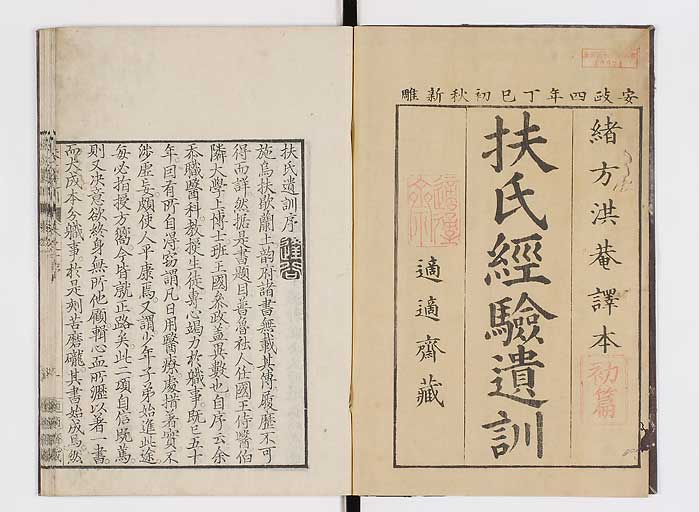 安政四年丁巳初秋新雕
緒方洪菴譯本
初篇
扶氏經驗遺訓
適適齋藏
扶氏遺訓序
施烏扶歇蘭土韵府諸書無載其傳履歷不可
得而詳然據是書題目普魯社人仕國王侍醫伯
隣大學上博士班王國參政蓋異數也自序云余
忝職醫科教授生徒專心竭力於職事既已五十
年因有所自得窃謂凡日用醫療處措者實不
涉虛妄頗使人平康焉又謂少年子弟始進此途
每必指授方嚮今皆就正路矣此二項自信既篤
則又決意欲終身無所他顧輯心血所瀝以著一書
而大成本分職事於是刻苦磨礲其書始成焉然